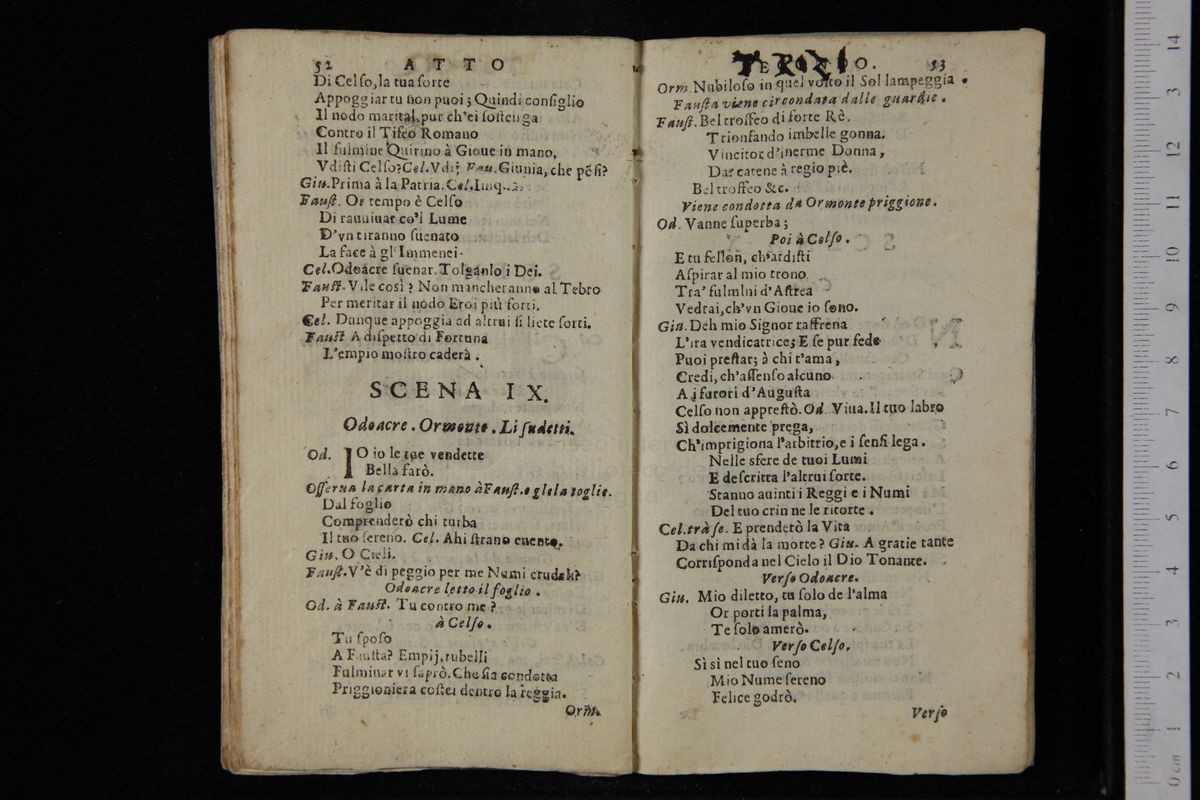 52 ATTO
Di Celſo, la tua ſorte
Appoggiar tu non puoi; Quindi conſiglio
Il nodo marital, pur ch'ei ſoſtenga
Contro il Tifeo Romano
Il fulmine Quirino à Gioue in mano,
Vdiſti Celſo? Cel. Vdij Fau. Giunia, che pẽſi?
Giu. Prima à la Patria. Cel.
Fauſt. Or tempo è Celſo
Di rauuiuar co'l Lume
D'vn tiranno ſuenato
La face à gl'Immenei.
Cel. Odoacre ſuenar. Tolganlo i Dei.
Fauſt. Vile così? Non mancheranno al Tebro
Per meritar il nodo Eroi più forti.
Cel. Dunque appoggia ad altrui ſi liete ſorti.
Fauſt A diſpetto di Fortuna
L'empio moſtro caderà.
SCENA IX.
Odoacre. Ormonte. Li ſudetti.
Od. IO io le tue vendette
Bella farò.
Oſſerua la carta in mano à Fauſt. e glela toglie.
Dal foglio
Comprenderò chi turba
Il tuo ſereno. Cel. Ahi ſtrano euento.
Giu. O Cieli.
Fauſt. V'è di peggio per me Numi crudeli?
Odoacre letto il foglio.
Od. à Fauſt. Tu contro me?
à Celſo.
Tu ſpoſo
A Fauſta? Empij, rubelli
Fulminar vi ſaprò. Che ſia condotta
Priggioniera coſtei dentro la reggia.
Orm.
TERZO. 53
Orm. Nubiloſo in quel volto il Sol lampeggia.
Fauſta viene circondata dalle guardie.
Fauſt. Bel troffeo di forte Rè.
Trionfando imbelle gonna.
Vincitor d'inerme Donna,
Dar catene à regio piè.
Bel troffeo &c.
Viene condotta da Ormonte priggione.
Od. Vanne ſuperba;
Poi à Celſo.
E tu fellon, ch'ardiſti
Aſpirar al mio trono
Tra' fulmini d'Aſtrea
Vedrai, ch'vn Gioue io ſono.
Giu. Deh mio Signor raffrena
L'ira vendicatrice; E ſe pur fede
Puoi preſtar; à chi t'ama,
Credi, ch'aſſenſo alcuno
A i furori d'Auguſta
Celſo non appreſtò. Od. Viua. Il tuo labro
Sì dolcemente prega,
Ch'imprigiona l'arbitrio, e i ſenſi lega.
Nelle sfere de tuoi Lumi
E deſcritta l'altrui ſorte.
Stanno auinti i Reggi e i Numi
Del tuo crin ne le ritorte.
Cel. trà ſe. E prenderò la Vita
Da chi mi dà la morte? Giu. A gratie tante
Corriſponda nel Cielo il Dio Tonante.
Verſo Odoacre.
Giu. Mio diletto, tu ſolo de l'alma
Or porti la palma,
Te ſolo amerò.
Verſo Celſo.
Sì sì nel tuo ſeno
Mio Nume ſereno
Felice godrò.
Verſo